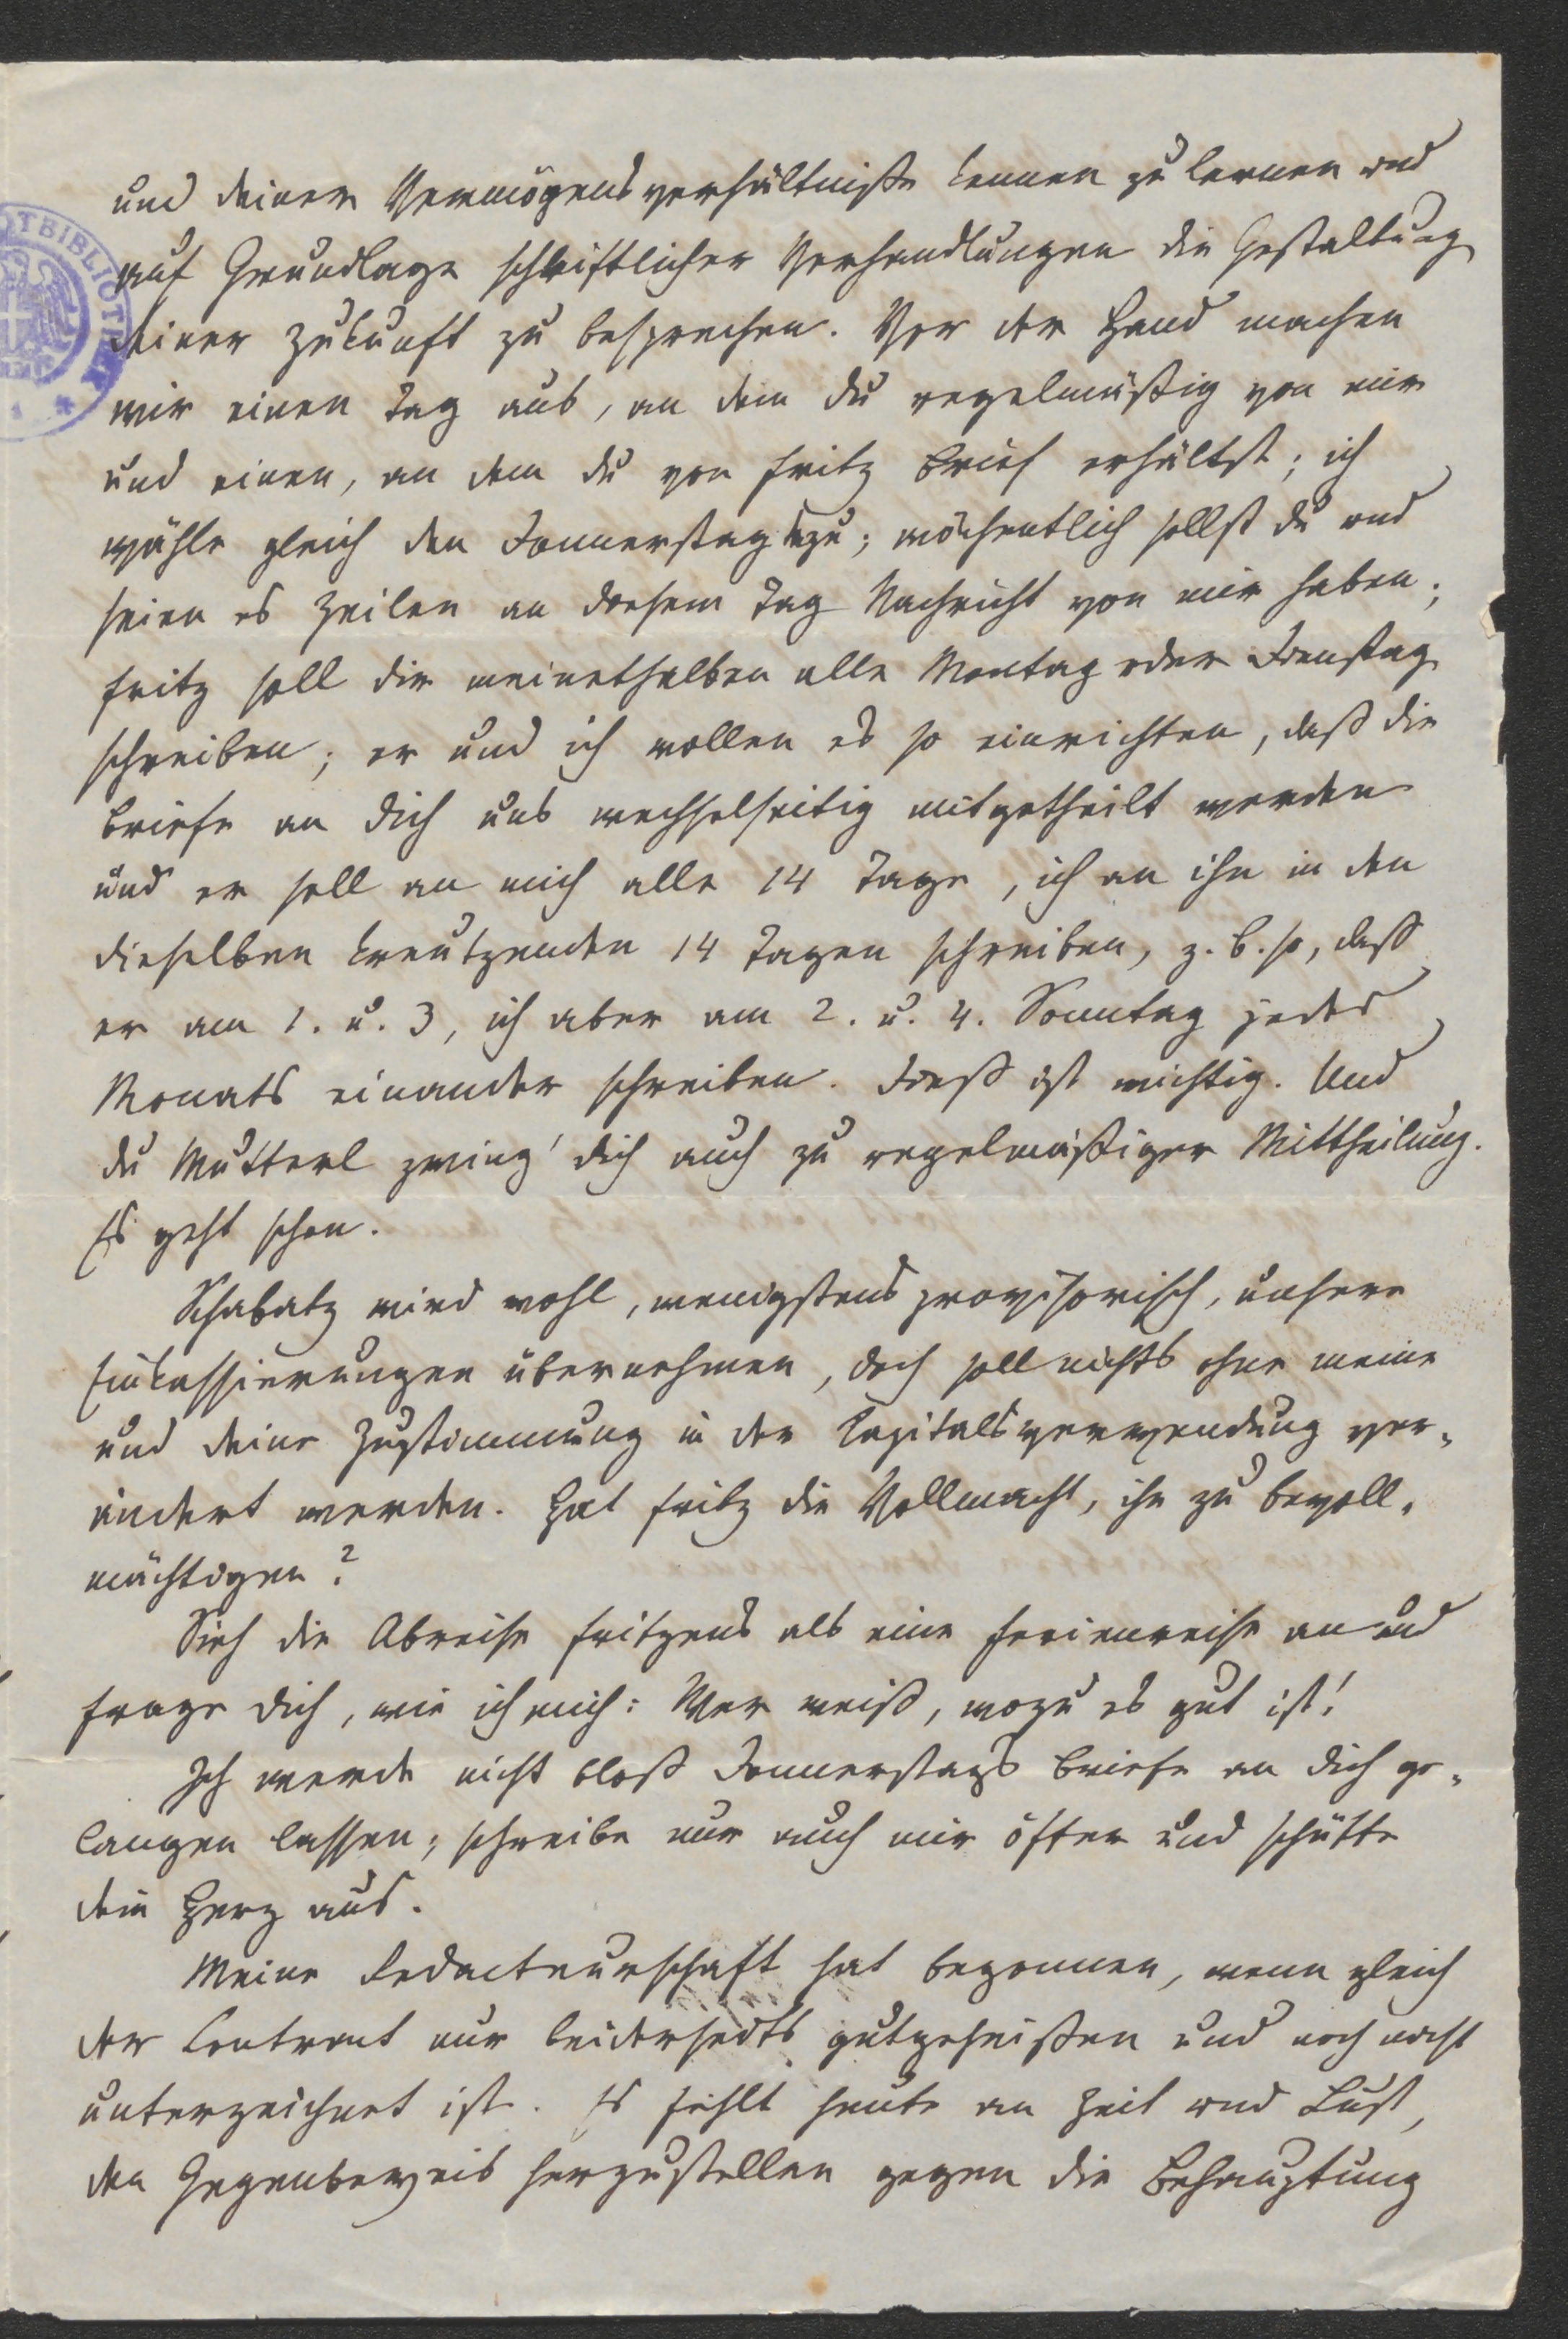 und deiner Vermögensverhältniße kennen zu lernen und
auf Grundlage schriftlicher Verhandlungen die Gestaltung
deiner Zukunft zu besprechen. Vor der Hand machen
wir einen Tag aus, an dem du regelmäßig von mir
und einen, an dem du von Fritz Brief erhältst; ich
wähle gleich den Donnerstag dazu; wöchentlich sollst du und
seien es Zeilen an diesem Tag Nachricht von mir haben;
Fritz soll dir meinethalben alle Montag oder Dienstag
schreiben; er und ich wollen es so einrichten, daß die
Briefe an dich uns wechselseitig mitgetheilt werden
und er soll an mich alle 14 Tage, ich an ihn in den
dieselben kreutzenden 14 Tagen schreiben, z. B. so, daß
er am 1. u. 3, ich aber am 2. u. 4. Sonntag jedes
Monats einander schreiben. Dieß ist wichtig. Und
du Mutterl zwing' dich auch zu regelmäßiger Mittheilung.
Es geht schon.
Schabatz wird wohl, wenigstens provisorisch, unsere
Einkassierungen übernehmen, doch soll nichts ohne meine
und deine Zustimmung in der Capitalsverwendung ver-
ändert werden. Hat Fritz die Vollmacht, ihn zu bevoll-
mächtigen?
Sieh die Abreise Fritzens als eine Ferienreise an und
frage dich, wie ich mich: Wer weiß, wozu es gut ist!
Ich werde nicht bloß Donnerstags Briefe an dich ge-
langen lassen; schreibe nur auch mir öfter und schütte
dein Herz aus.
Meine Redacteurschaft hat begonnen, wenn gleich
der Contract nur beiderseits gutgeheißen und noch nicht
unterzeichnet ist. Es fehlt heute an Zeit und Lust,
den Gegenbeweis herzustellen gegen die Behauptung